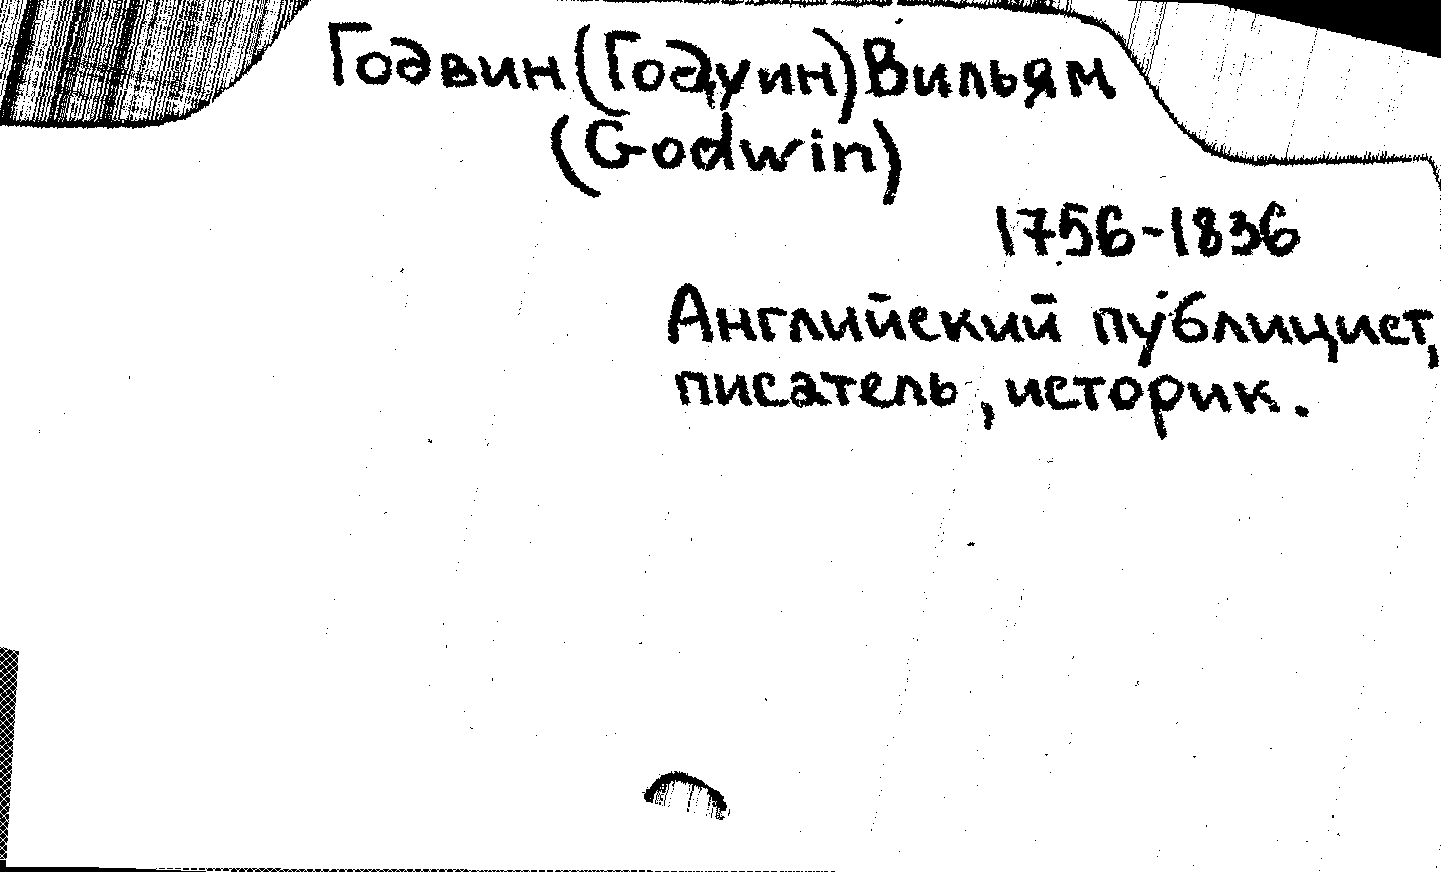 Годвин (Годуин) Вильям
(Godwin)
1756-1836
Английский публицист,
писатель, историк.